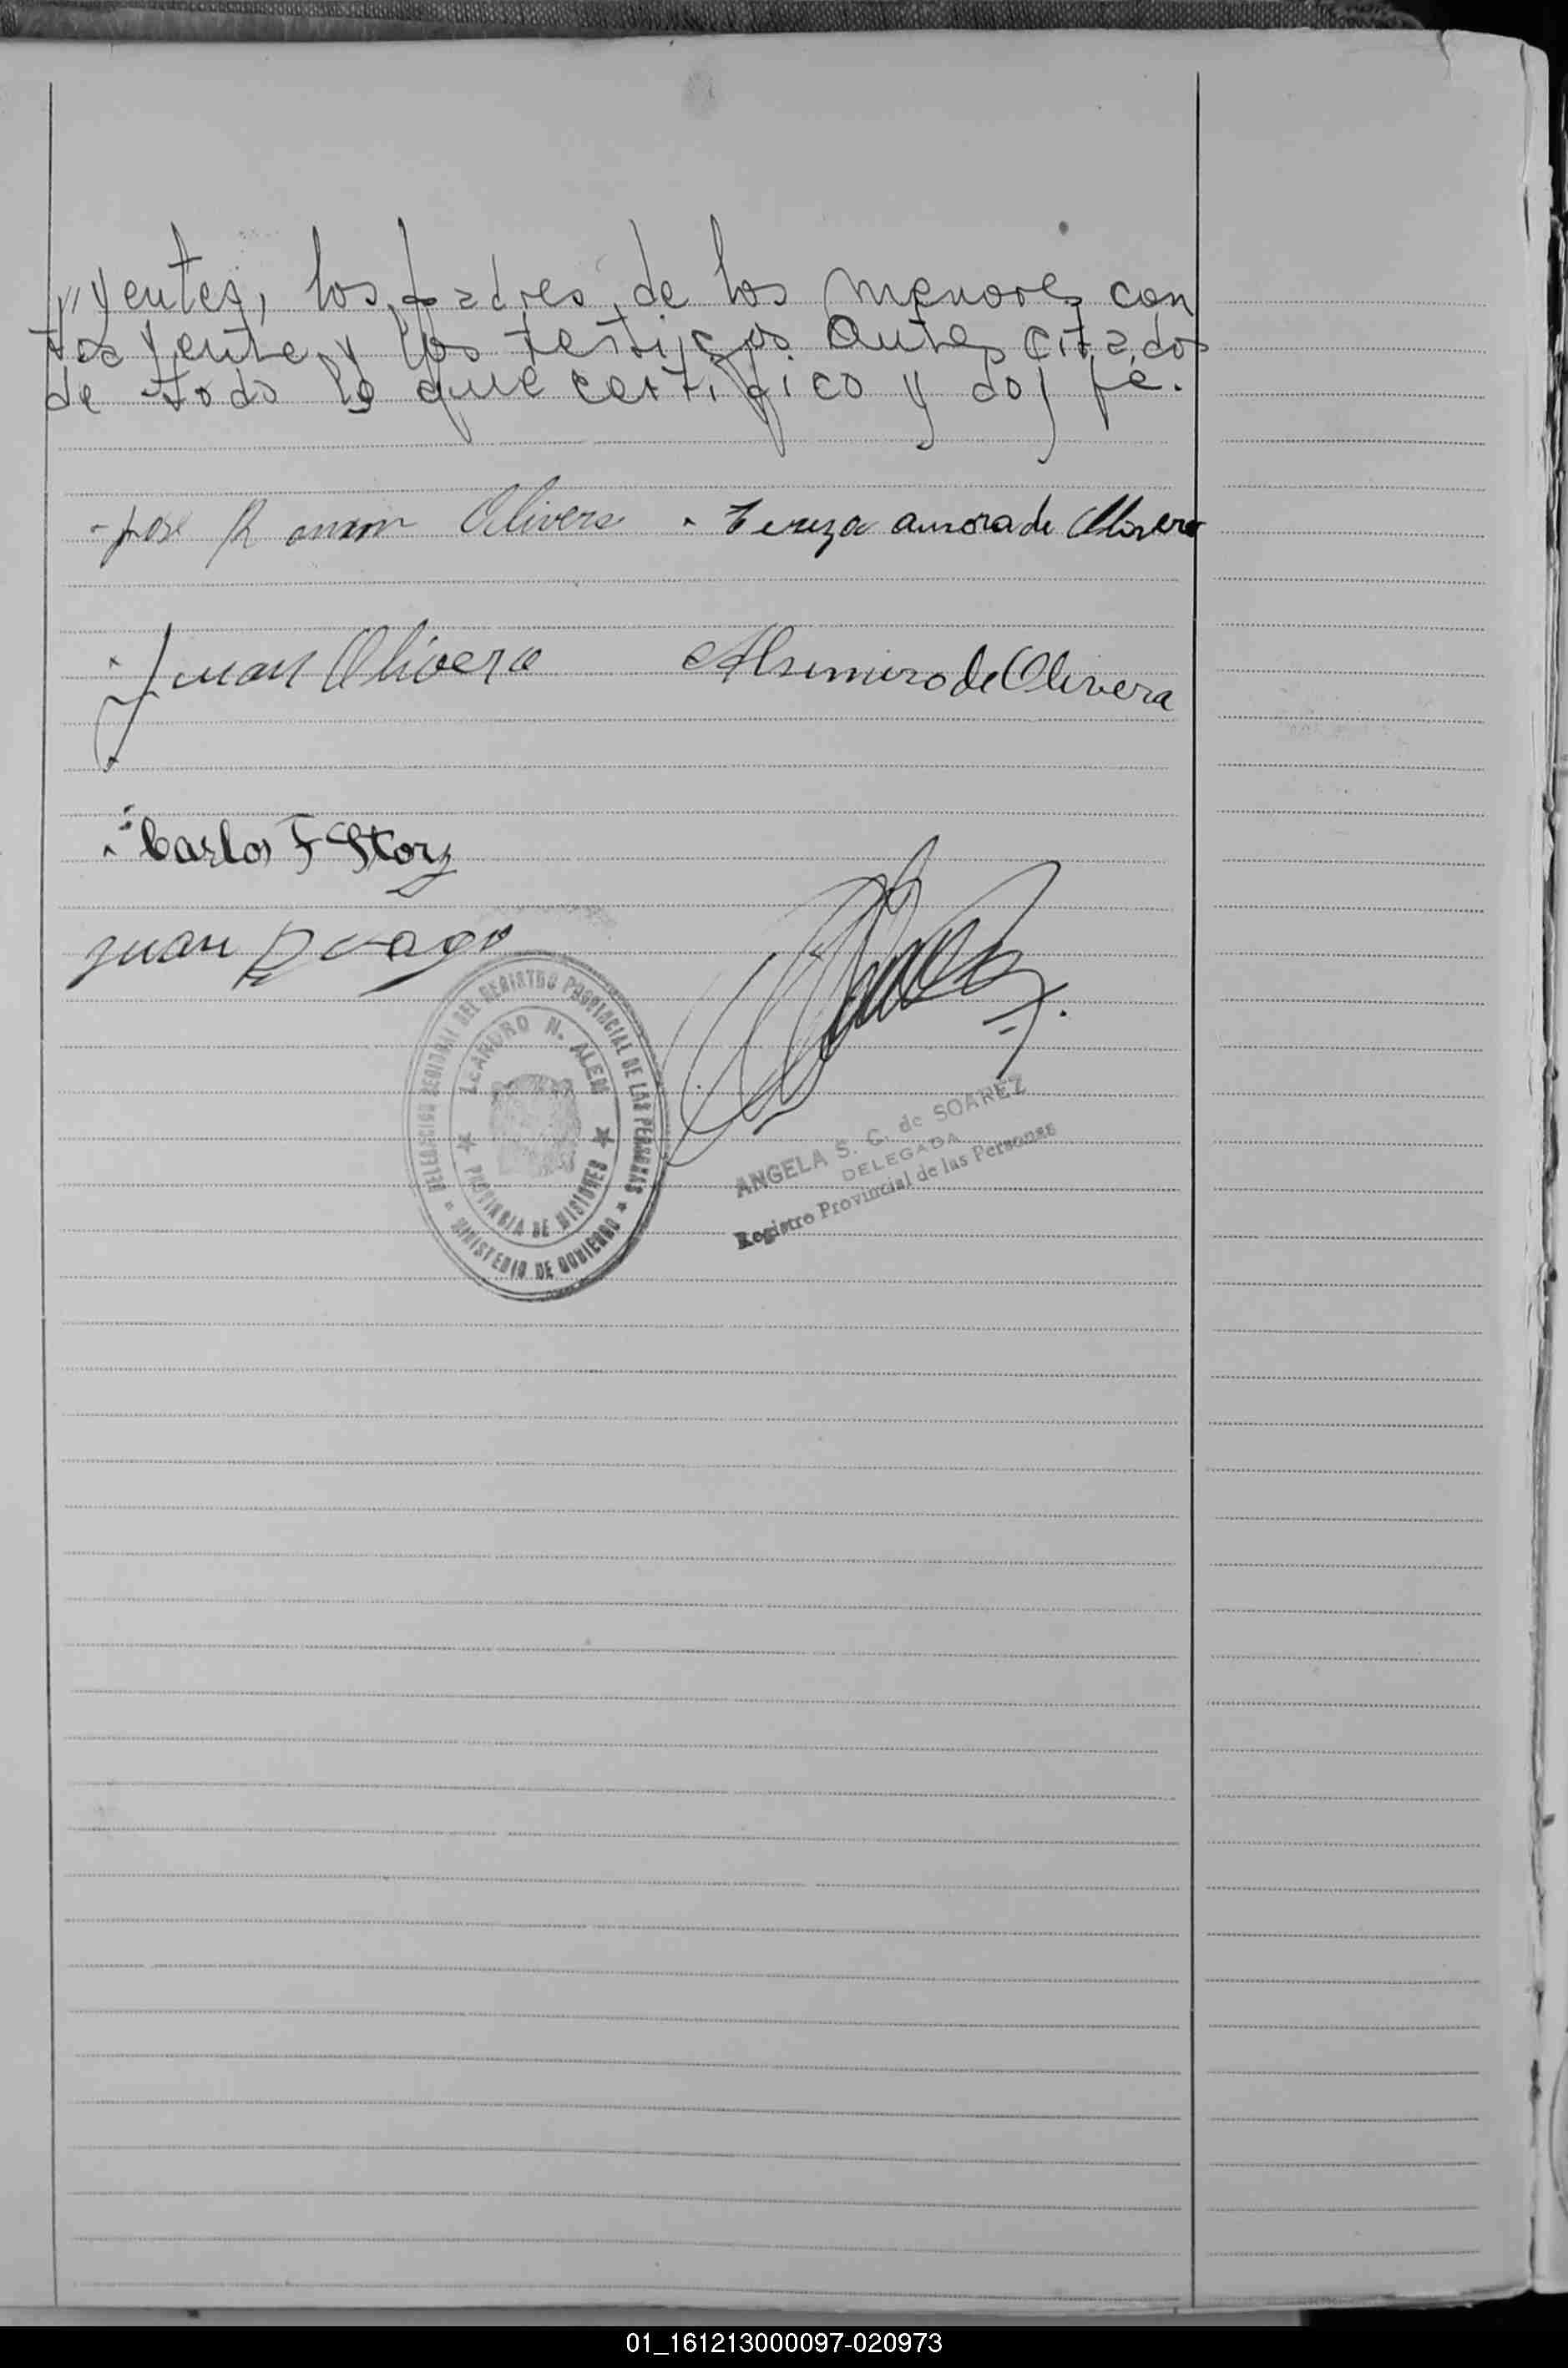 "yentes, los padres de los menores con
trayente y los testigos antes citados
de todo lo que certifico y doy fé.
Jose Ramon Olivera
Tereza aurora de Olivera
Juan Olivera
Alsimiro de Olivera
Carlos F Story
Juan Drago
DELEGACION REGIONAL DEL REGISTRO PROVINCIAL DE LAS PERSONAS
LEANDRO N. ALEM
PROVINCIA DE MISIONES
MINISTERIO DE GOBIERNO
ANGELA S. C. de SOAREZ
DELEGADA
Registro Provincial de las Personas
01_161213000097-020973